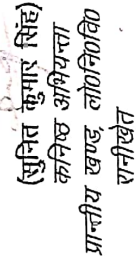 (सुनित कुमार सिंह)
कनिष्ठ अभियन्ता
प्रान्तीय खण्ड लो०नि०वि०
रानीखेत